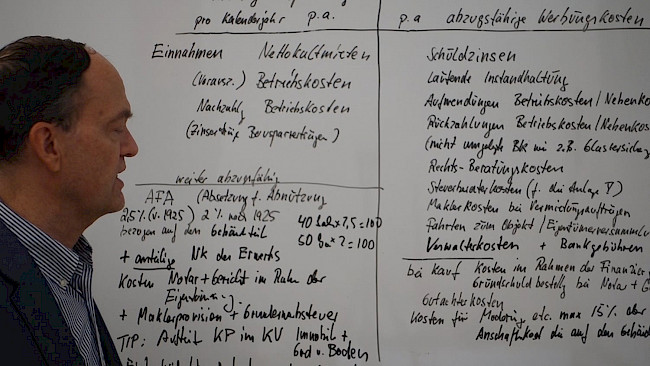 pro Kalenderjahr p.a.
Einnahmen Nettokaltmieten
(Vorausz.) Betriebskosten
Nachzahlg Betriebskosten
(Zinserträge Bausparverträgen)
weiter abzugsfähig
AFA (Absetzung f. Abnutzung
2,5% (v. 1925) 2% nach 1925
bezogen auf den Gebäudeteil
40 Jahr x 2,5 = 100
50 Jahr x 2 = 100
+ anteilige Nk des Erwerbs
Kosten Notar + Gericht im Rahm der
+ Maklerprovision + Grunderwerbsteuer
TIP: Aufteil KP im KV Immobil +
Grd u. Boden
p.a abzugsfähige Werbungskosten
Schuldzinsen
Laufende Instandhaltung
Aufwendungen Betriebskosten / Nebenko
Rückzahlungen Betriebskosten / Nebenko
(nicht umgelegte Bk wie z.B. Glasversicherg
Rechts-Beratungskosten
Steuerberaterkosten (f. die Anlage V)
Maklerkosten bei Vermietungsaufträgen
Fahrten zum Objekt / Eigentümerversammlu
Verwalterkosten + Bankgebühren
bei Kauf Kosten im Rahmen der Finanzier
Grundschuldbestellg bei Notar + G
Gutachterkosten
Kosten für Modernis. etc. max 15% der
Anschaffkost die auf den Gebäude